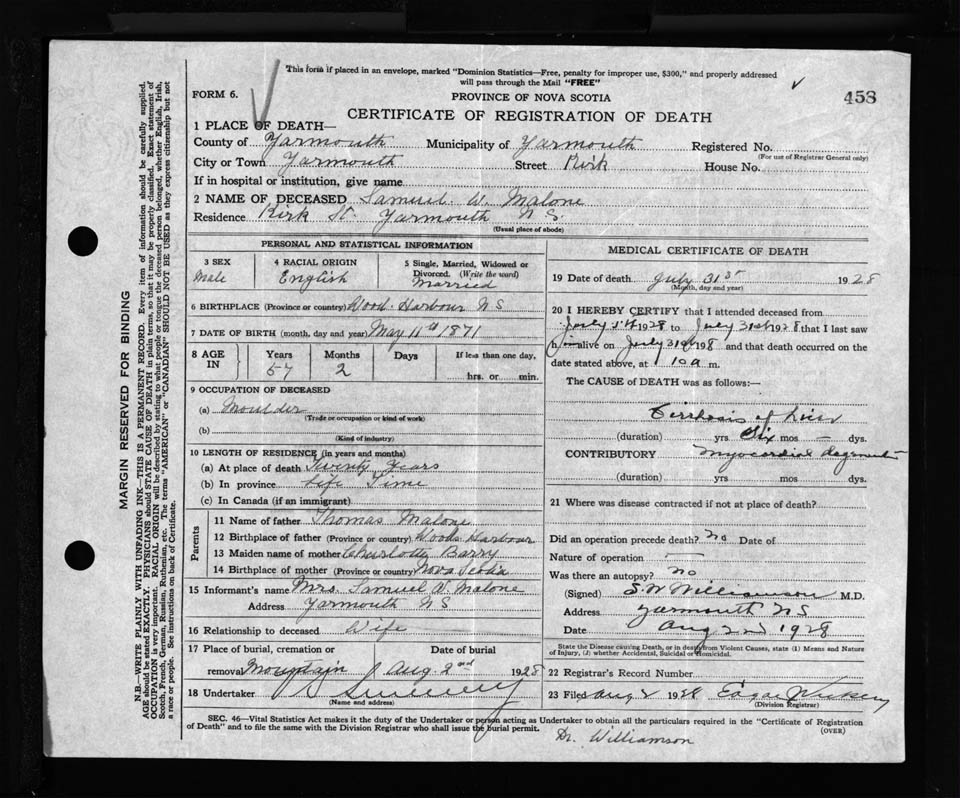 This form if placed in an envelope, marked "Dominion Statistics—Free, penalty for improper use, $300," and properly addressed
will pass through the Mail "FREE"
FORM 6.
PROVINCE OF NOVA SCOTIA
458
CERTIFICATE OF REGISTRATION OF DEATH
1 PLACE OF DEATH—
County of Yarmouth Municipality of Yarmouth Registered No.
(For use of Registrar General only)
City or Town Yarmouth Street Kirk House No.
If in hospital or institution, give name
2 NAME OF DECEASED Samuel W. Malone
Residence Kirk St. Yarmouth N S.
(Usual place of abode)
PERSONAL AND STATISTICAL INFORMATION
3 SEX 4 RACIAL ORIGIN 5 Single, Married, Widowed or
Divorced. (Write the word)
Male English Married
6 BIRTHPLACE (Province or country) Wood Harbour N S
7 DATE OF BIRTH (month, day and year) May 11th 1871
8 AGE IN Years Months Days If less than one day,
57 2 hrs. or min.
9 OCCUPATION OF DECEASED
(a) Moulder
(Trade or occupation or kind of work)
(b)
(Kind of industry)
10 LENGTH OF RESIDENCE (in years and months)
(a) At place of death Twenty Years
(b) In province Life Time
(c) In Canada (if an immigrant)
Parents
11 Name of father Thomas Malone
12 Birthplace of father (Province or country) Woods Harbour
13 Maiden name of mother Charlotte Barry
14 Birthplace of mother (Province or country) Nova Scotia
15 Informant's name Mrs. Samuel W. Malone
Address Yarmouth N S
16 Relationship to deceased Wife
17 Place of burial, cremation or Date of burial
removal Mountain Aug. 2nd 1928
18 Undertaker Sweeney
(Name and address)
MEDICAL CERTIFICATE OF DEATH
19 Date of death July 31st 1928
(Month, day and year)
20 I HEREBY CERTIFY that I attended deceased from
July 1928 to July 31st 1928 that I last saw
h alive on July 31st 1928 and that death occurred on the
date stated above, at 10 a m.
The CAUSE OF DEATH was as follows:
Cirrhosis of Liver
(duration) yrs Six mos — dys.
CONTRIBUTORY Myocardial
(duration) yrs mos dys.
21 Where was disease contracted if not at place of death?
Did an operation precede death? No Date of
Nature of operation —
Was there an autopsy? no
(Signed) S. W Williamson M.D.
Address Yarmouth N S
Date Aug 2nd 1928
State the Disease causing Death, or in death from Violent Causes, state (1) Means and Nature
of Injury, (2) whether Accidental, Suicidal or Homicidal.
22 Registrar's Record Number
23 Filed Aug 2 1928 Edgar
(Division Registrar)
SEC. 46—Vital Statistics Act makes it the duty of the Undertaker or person acting as Undertaker to obtain all the particulars required in the "Certificate of Registration
of Death" and to file the same with the Division Registrar who shall issue the burial permit. (OVER)
Dr. Williamson
MARGIN RESERVED FOR BINDING
N.B.—WRITE PLAINLY WITH UNFADING INK—THIS IS A PERMANENT RECORD. Every item of information should be carefully supplied.
AGE should be stated EXACTLY. PHYSICIANS should STATE CAUSE OF DEATH in plain terms, so that it may be properly classified. Exact statement of
OCCUPATION is very important. RACIAL ORIGIN will be described by stating to what people or tongue the deceased person belonged, whether English, Irish,
Scotch, French, German, Russian, Ruthenian, etc. The terms "AMERICAN" or "CANADIAN" SHOULD NOT BE USED as they express citizenship but not
a race or people. See instructions on back of Certificate.